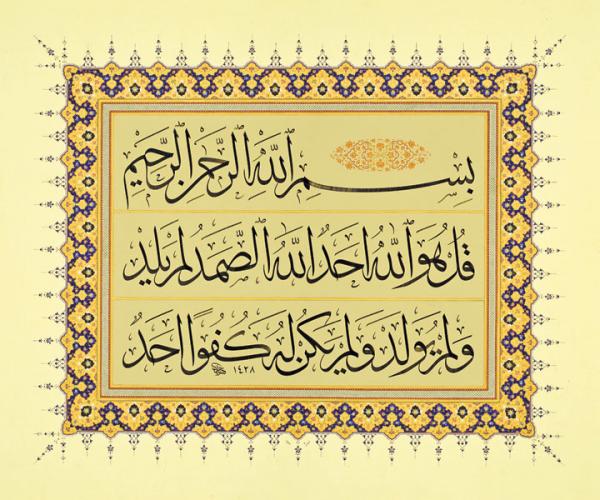 بِسْمِ اللّٰهِ الرَّحْمٰنِ الرَّحِيْمِ
قُلْ هُوَ اللّٰهُ اَحَدٌ اَللّٰهُ الصَّمَدُ لَمْ يَلِدْ
وَلَمْ يُولَدْ وَلَمْ يَكُنْ لَهُ كُفُوًا اَحَدٌ
١٤٢٨